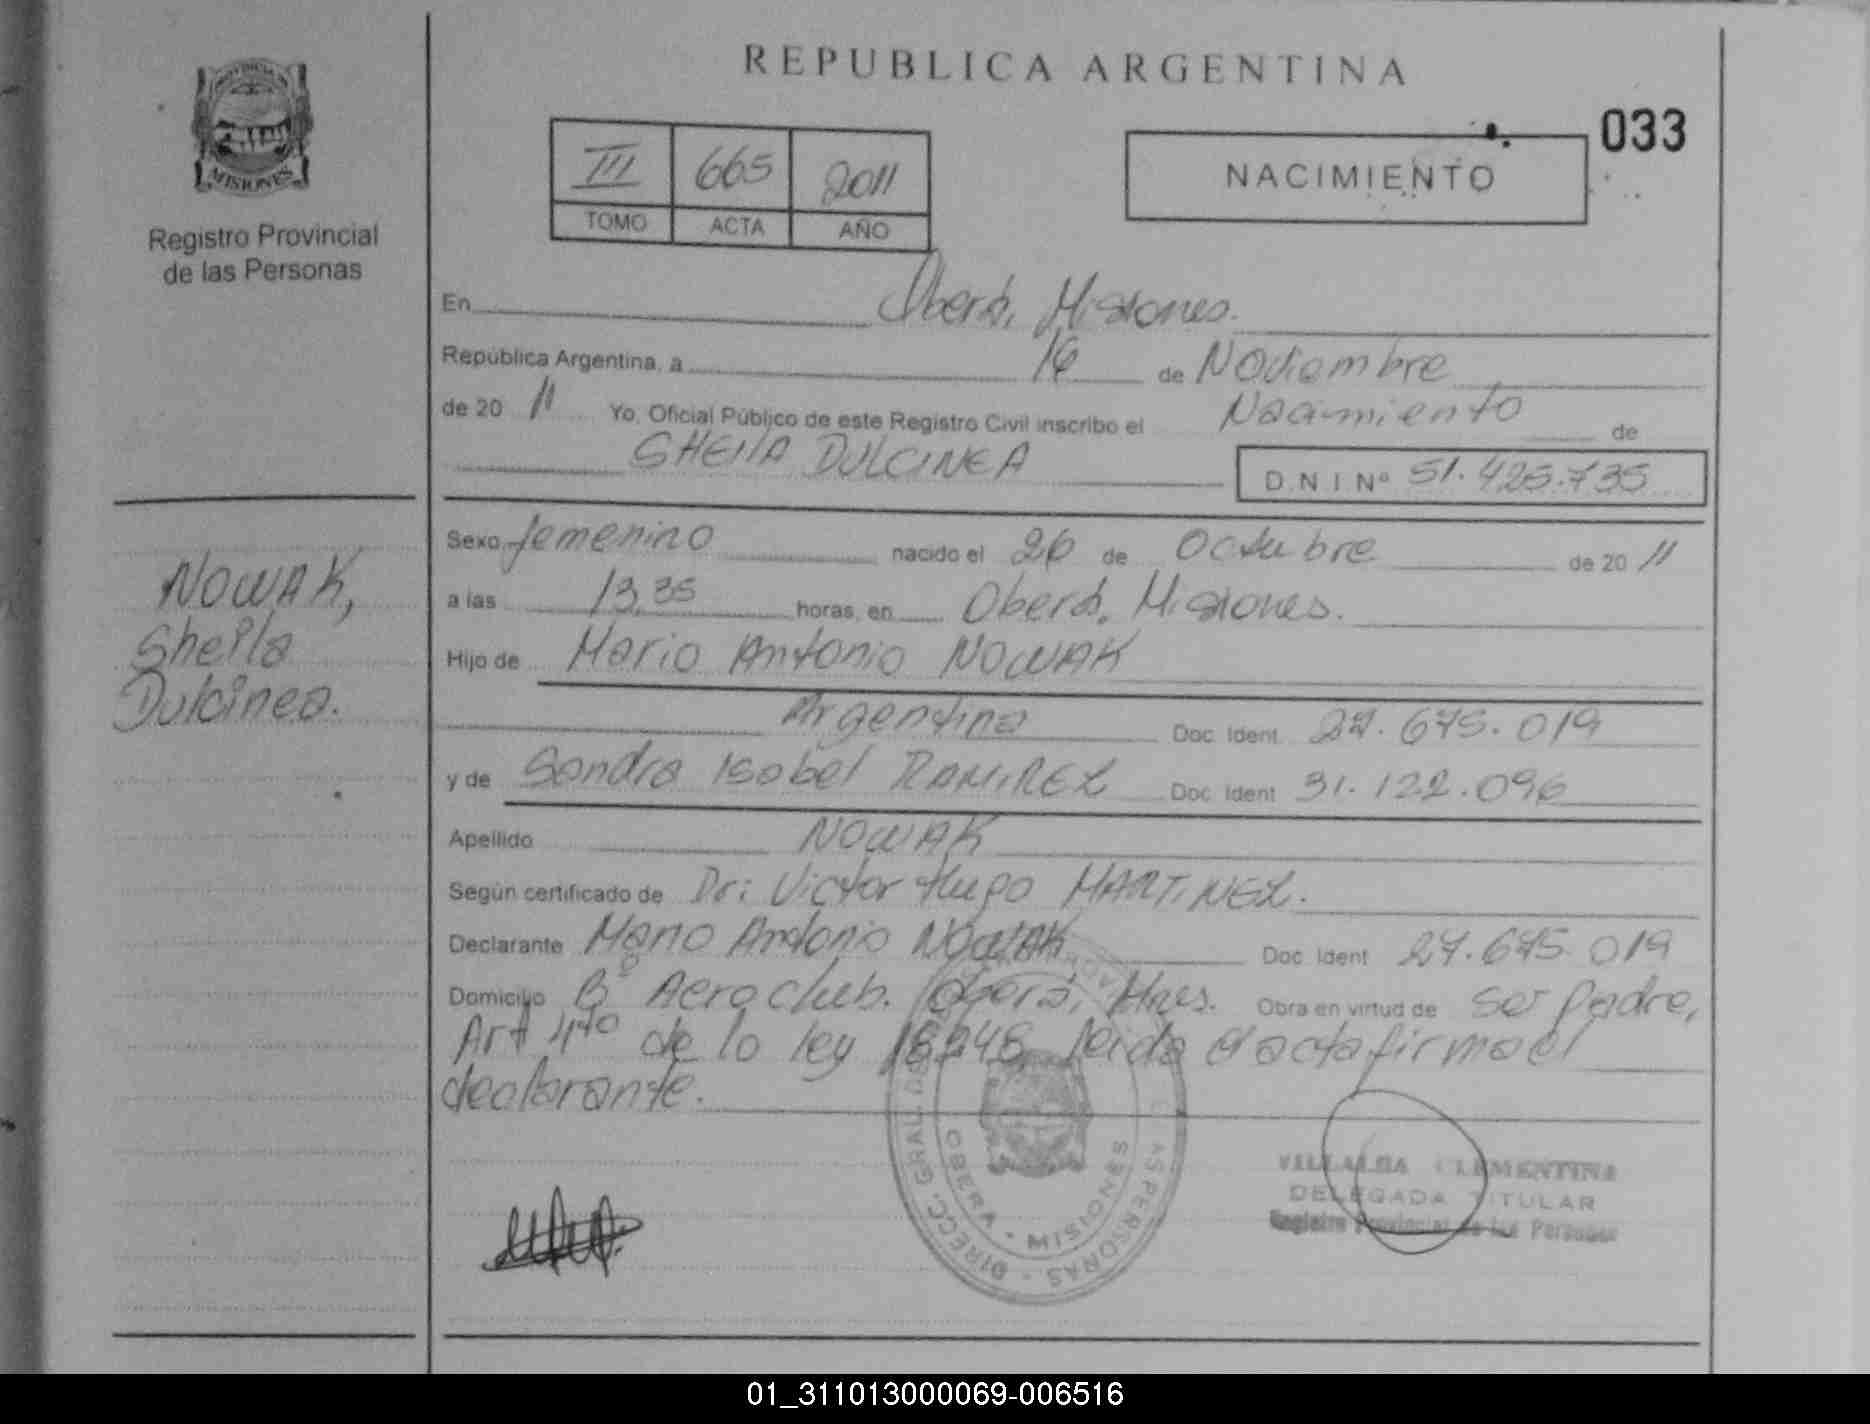 REPUBLICA ARGENTINA
PROVINCIA DE
MISIONES
Registro Provincial
de las Personas
III 665 2011
TOMO ACTA AÑO
NACIMIENTO
033
En Oberá, Misiones.
República Argentina, a 16 de Noviembre
de 20 11 Yo, Oficial Público de este Registro Civil inscribo el Nacimiento de
SHEIlA DULCINEA
D.N.I Nº 51.425.735
NOWAK,
Sheila
Dulcinea.
Sexo femenino nacido el 26 de Octubre de 20 11
a las 13,35 horas, en Oberá, Misiones.
Hijo de Mario Antonio NOWAK
Argentina Doc. Ident. 27.675.019
y de Sandra Isabel RAMIREZ Doc. Ident 31.122.096
Apellido NOWAK
Según certificado de Dr: Victor Hugo MARTINEZ.
Declarante Mario Antonio NOWAK Doc. Ident 27.675.019
Domicilio Bº Aeroclub. Oberá, Mnes. Obra en virtud de ser padre,
Art 4to de la ley 18248, leida el acta firma el
declarante.
DIRECC. GRAL. DE PERSONAS
OBERA - MISIONES
VILLALBA CLEMENTINA
DELEGADA TITULAR
Registro Provincial de las Personas
01_311013000069-006516